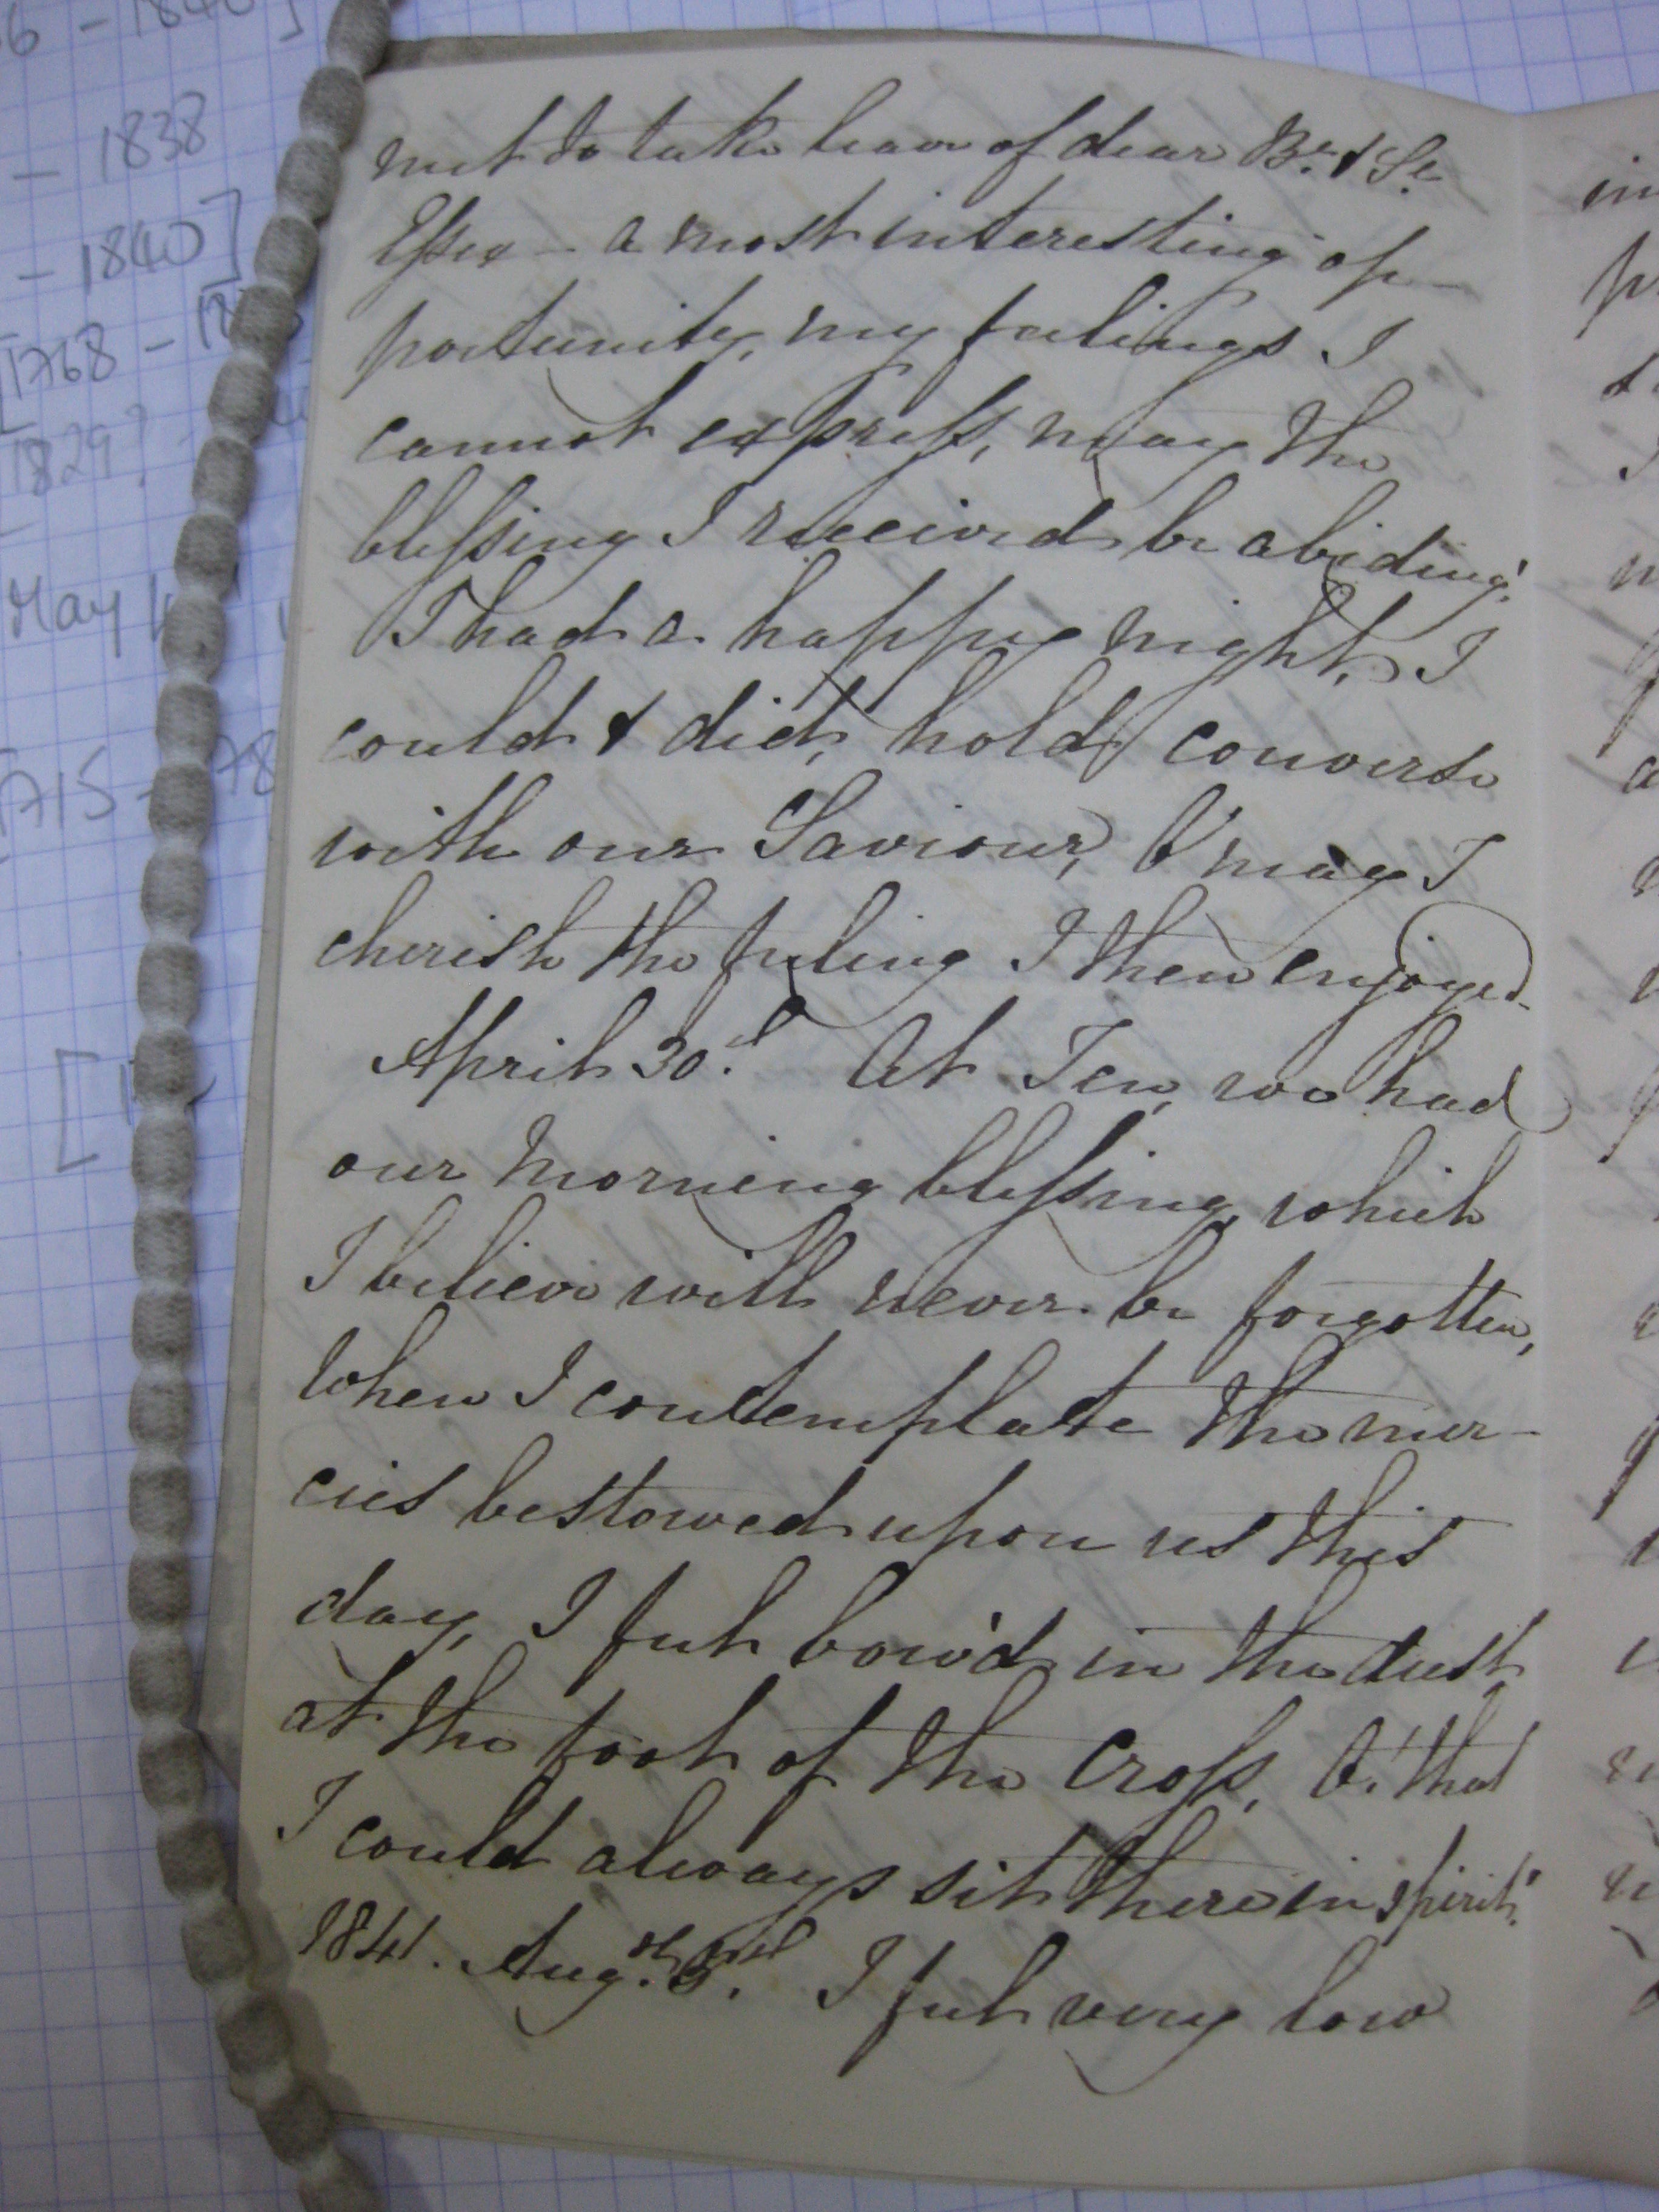 6 - 1840]
- 1838
- 1840]
[1768 - 18
1829?
May 1
1715 - 78
[1
met to take leave of dear Br. & Sr.
Essex - a most interesting op-
portunity, my feelings I
cannot express, may the
blessing I received be abiding!
I had a happy night, I
could & did, hold converse
with our Saviour, O' may I
cherish the feeling I then enjoyed
April 30th. At Ten, we had
our morning blessing, which
I believe will never be forgotten,
When I contemplate the mer-
cies bestowed upon us this
day, I felt bow'd in the dust
at the foot of the Cross, O! that
I could always sit there in spirit!
1841. Augst. I felt very low